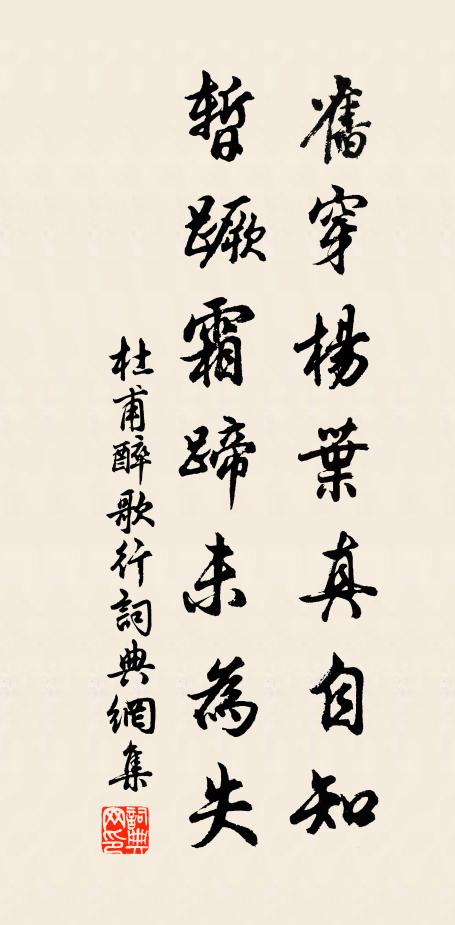 舊穿楊葉真自知
暫蹶霜蹄未為失
杜甫醉歌行詞典網集
詞典网印